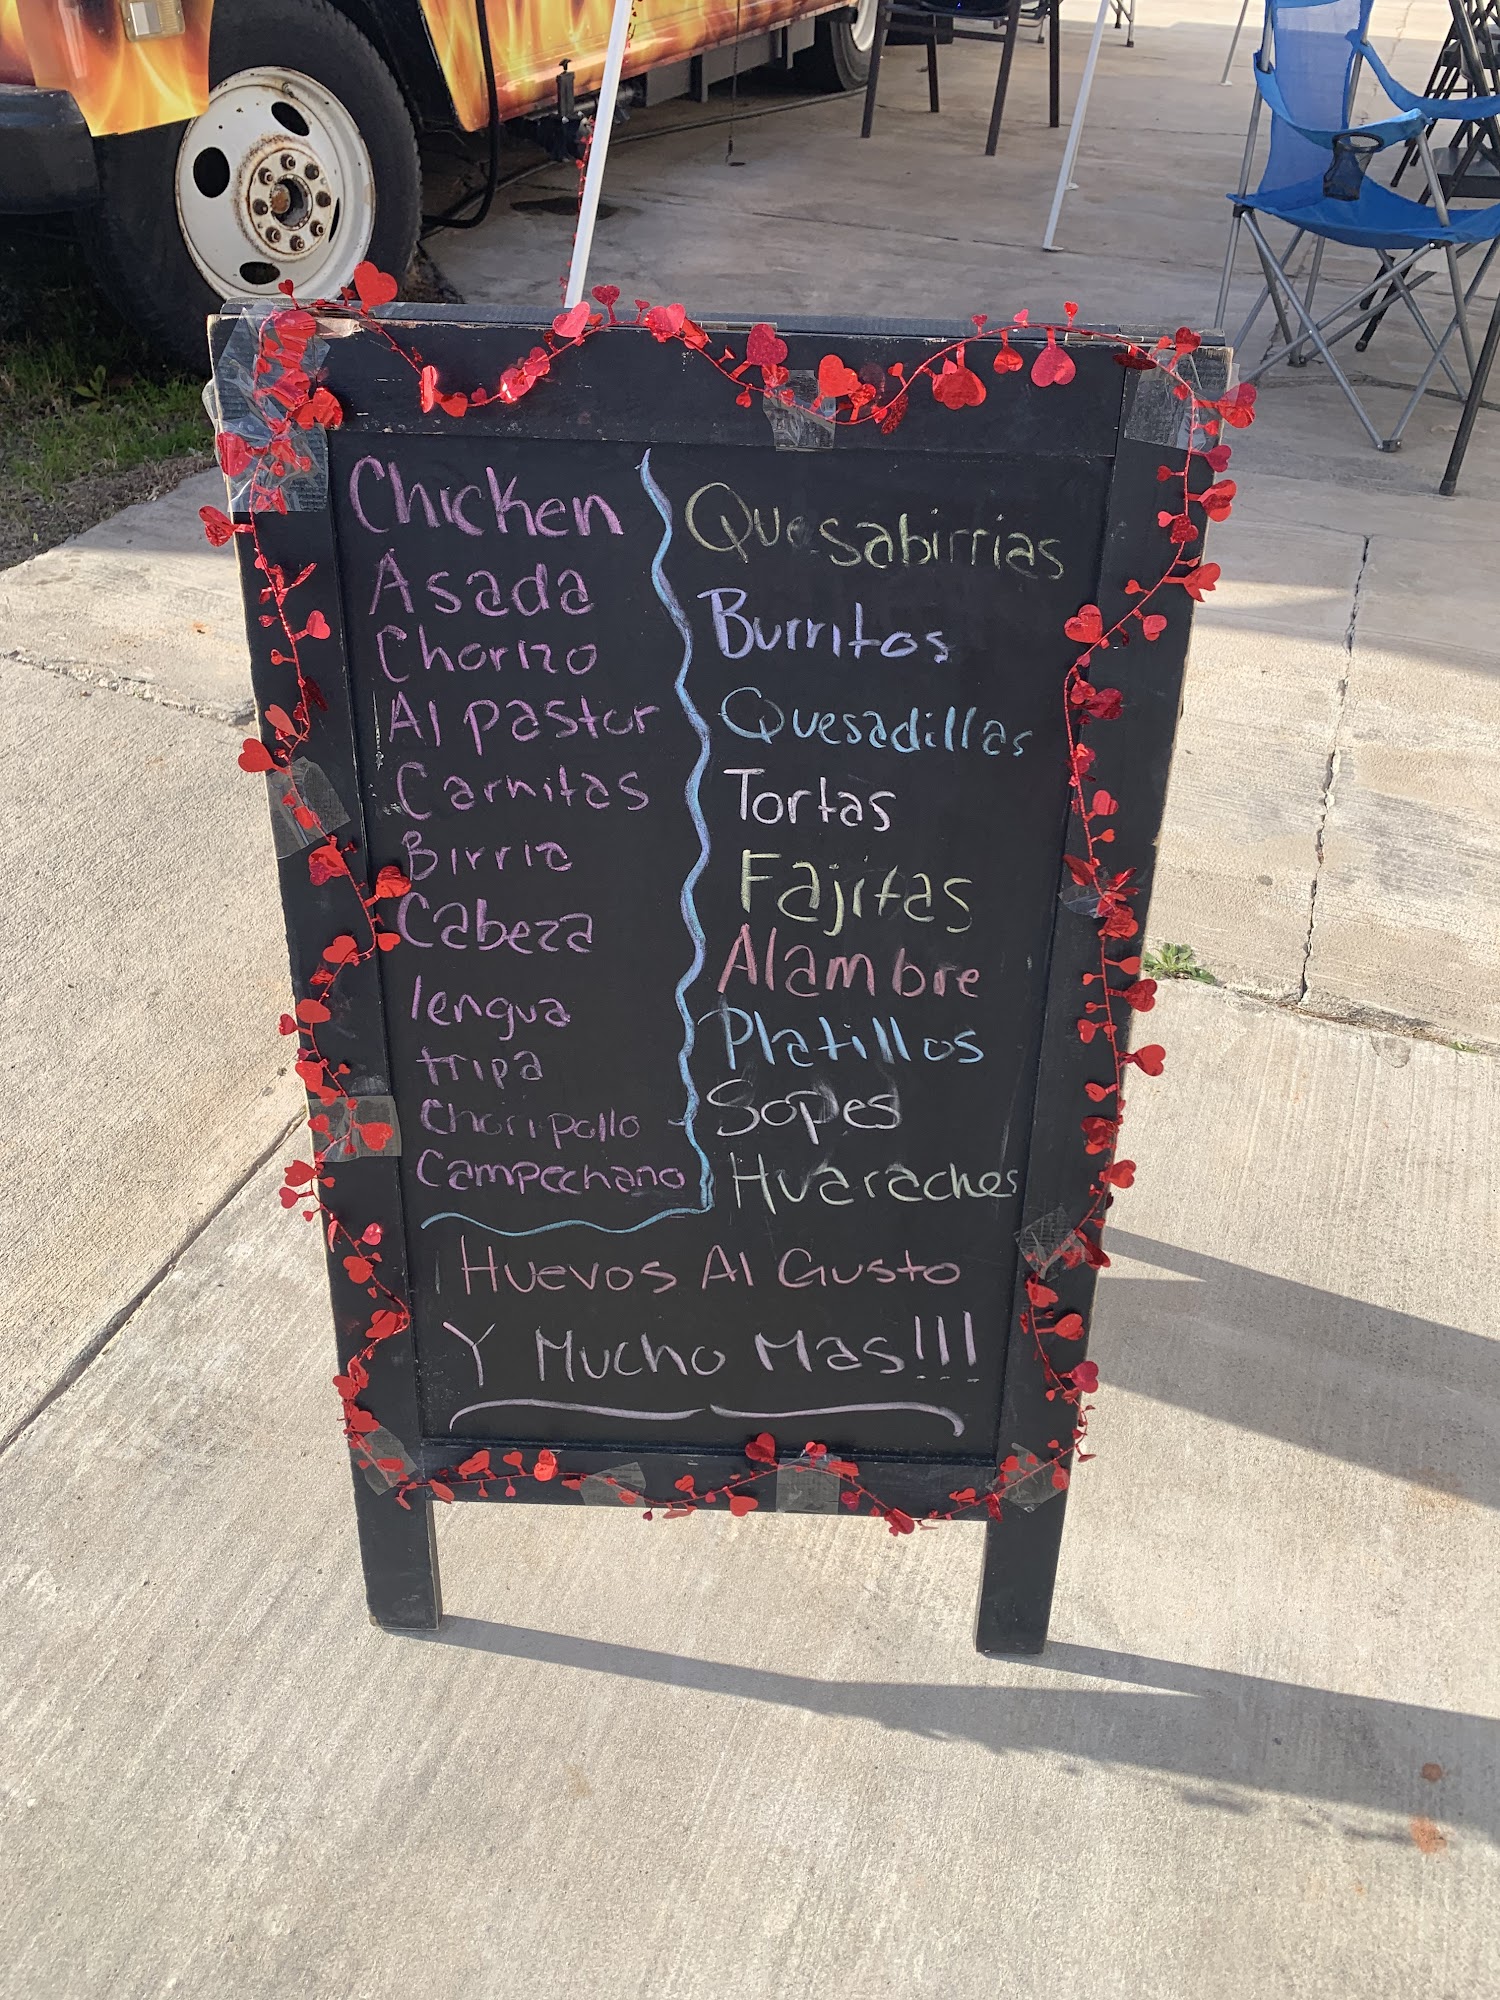 Chicken
Asada
Chorizo
Al pastor
Carnitas
Birria
Cabeza
lengua
tripa
Choripollo
Campechano
Quesabirrias
Burritos
Quesadillas
Tortas
Fajitas
Alambre
Platillos
Sopes
Huaraches
Huevos Al Gusto
Y Mucho Mas!!!